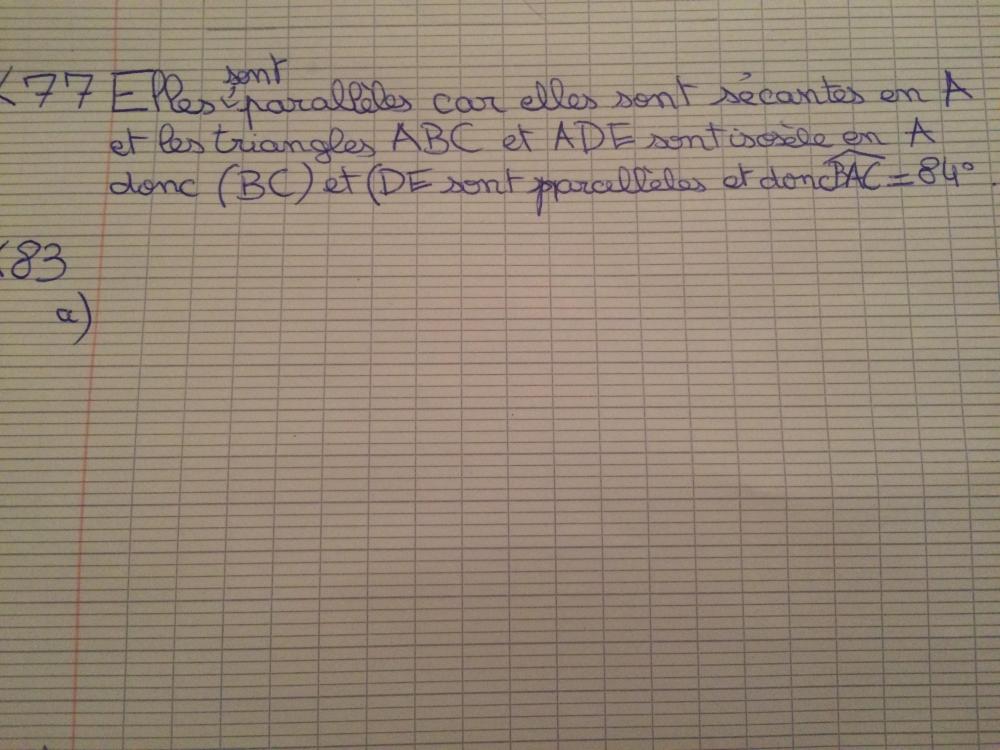 77 Elles sont parallèles car elles sont sécantes en A
et les triangles ABC et ADE sont isosèle en A
donc (BC) et (DE sont parallèles et donc BAC = 84°.
83
a)